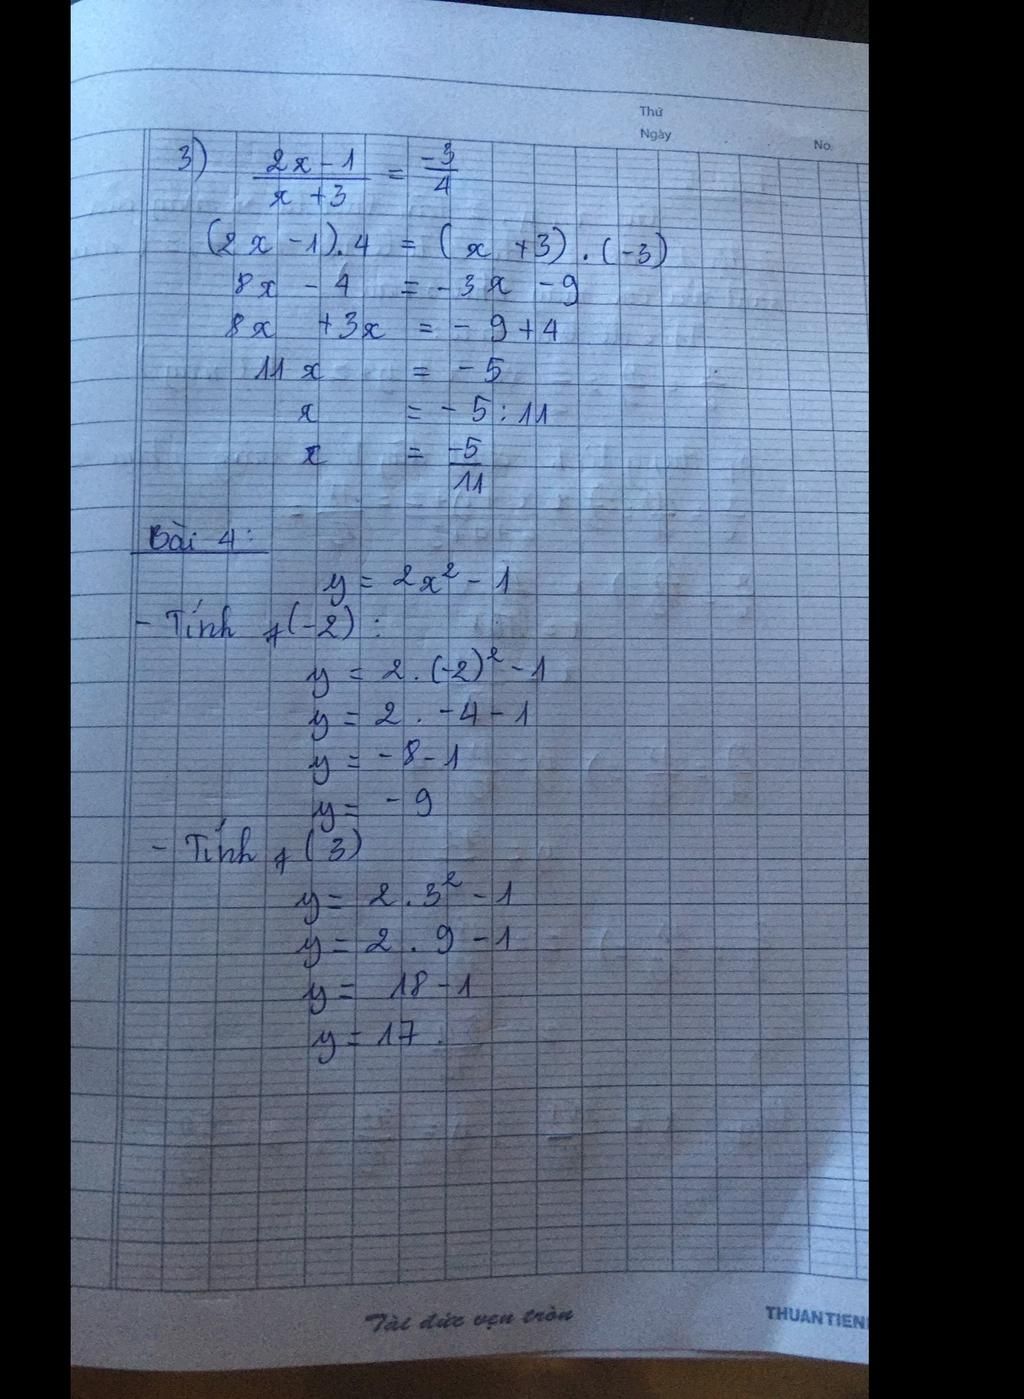 Thứ
Ngày
No.
3) (2x - 1)/(x + 3) = -3/4
(2x - 1).4 = (x + 3).(-3)
8x - 4 = -3x - 9
8x + 3x = -9 + 4
11x = -5
x = -5 : 11
x = -5/11
Bài 4:
y = 2x² - 1
- Tính f(-2) :
y = 2.(-2)² - 1
y = 2 . -4 - 1
y = -8 - 1
y = -9
- Tính f(3)
y = 2.3² - 1
y = 2 . 9 - 1
y = 18 - 1
y = 17.
Tài đức vẹn tròn
THUANTIEN